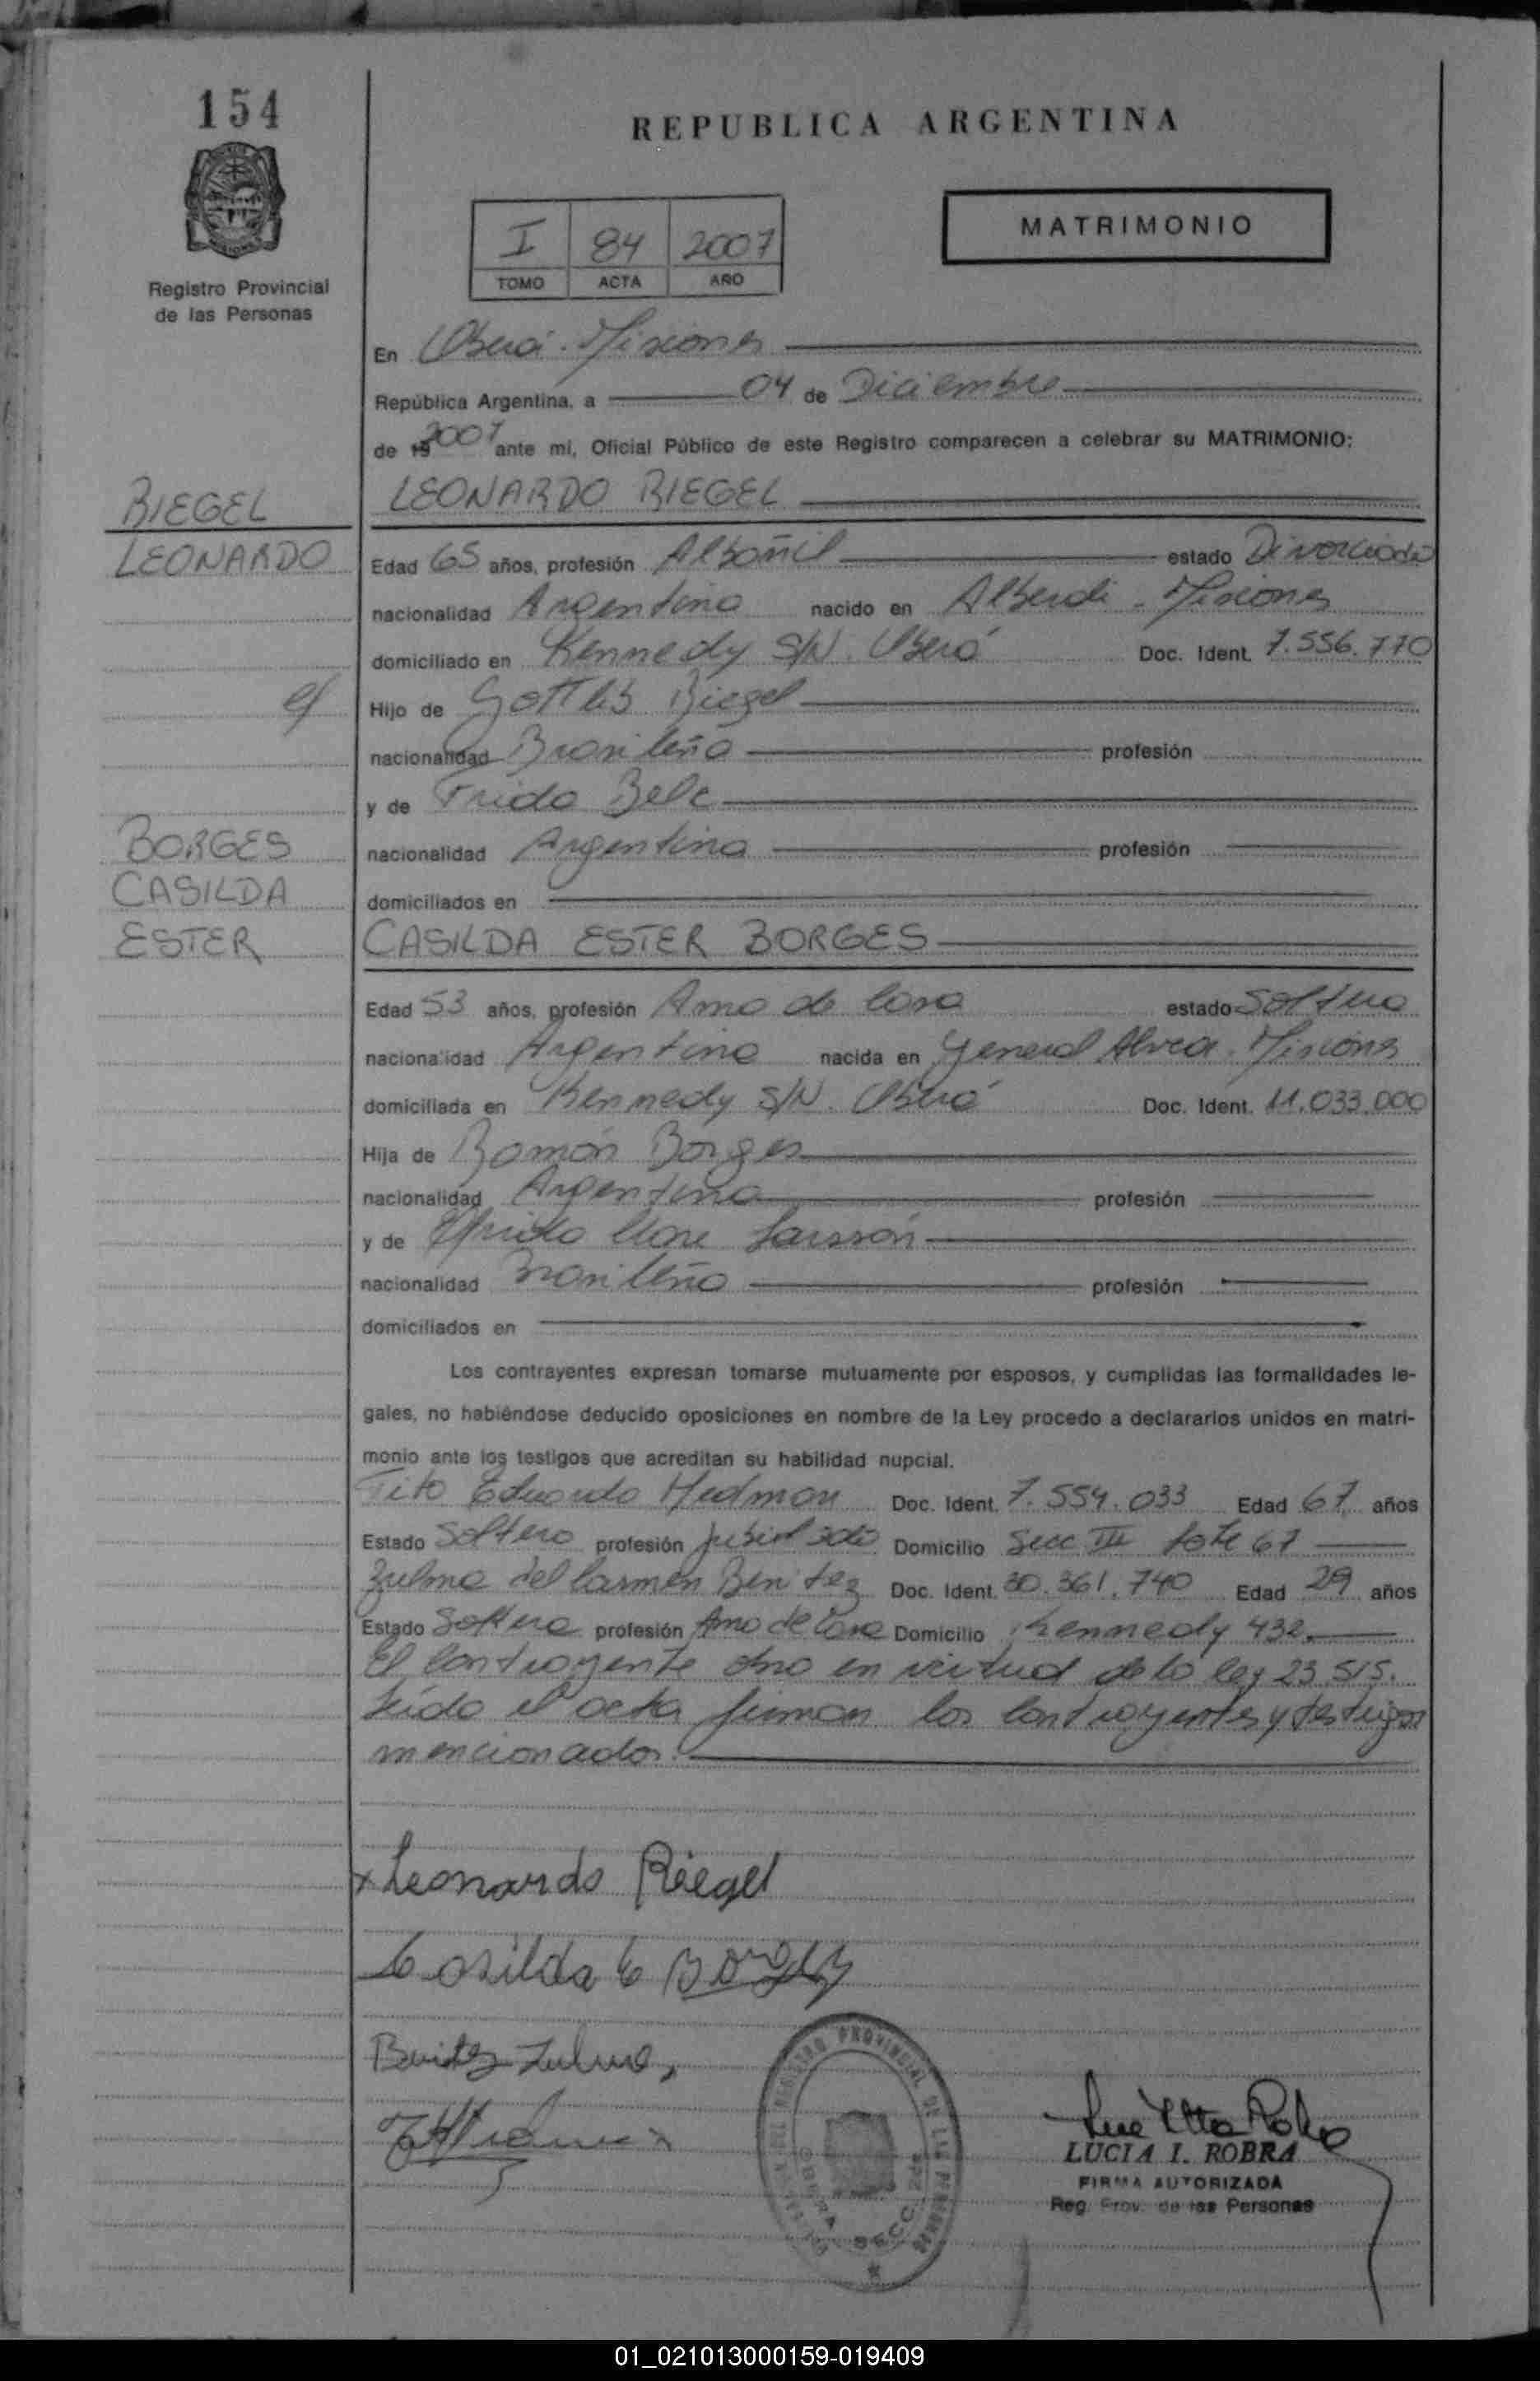 154
REPUBLICA ARGENTINA
Registro Provincial
de las Personas
I 84 2007
TOMO ACTA AÑO
MATRIMONIO
En Oberá - Misiones
República Argentina, a 04 de Diciembre
de 19 2007 ante mi, Oficial Público de este Registro comparecen a celebrar su MATRIMONIO:
RIEGEL
LEONARDO
LEONARDO RIEGEL
Edad 65 años, profesión Albañil estado Divorciado
nacionalidad Argentina nacido en Alberdi - Misiones
domiciliado en Kennedy S/N. Oberá Doc. Ident. 7.556.770
Hijo de Gottlib Riegel
nacionalidad Brasileña profesión
y de Frida Belc
nacionalidad Argentina profesión
domiciliados en
BORGES
CASILDA
ESTER
CASILDA ESTER BORGES
Edad 53 años, profesión Ama de Casa estado Soltera
nacionalidad Argentina nacida en General Alvear - Misiones
domiciliada en Kennedy S/N. Oberá Doc. Ident. 11.033.000
Hija de Ramón Borges
nacionalidad Argentina profesión
y de
nacionalidad Brasileña profesión
domiciliados en
Los contrayentes expresan tomarse mutuamente por esposos, y cumplidas las formalidades le-
gales, no habiéndose deducido oposiciones en nombre de la Ley procedo a declararlos unidos en matri-
monio ante los testigos que acreditan su habilidad nupcial.
Tito Eduardo Hedman Doc. Ident. 7.554.033 Edad 67 años
Estado Soltero profesión Jubilado Domicilio Secc III Lote 67
Zulma del Carmen Benitez Doc. Ident. 30.361.740 Edad 29 años
Estado Soltera profesión Ama de Casa Domicilio Kennedy 432.
El Contrayente en virtud de la ley 23.515.
Leída el acta firman los Contrayentes y testigos
mencionados.
x Leonardo Riegel
Casilda E Borges
Benitez Zulma
REGISTRO PROVINCIAL DE LAS PERSONAS
OBERA SECC.
LUCIA I. ROBRA
FIRMA AUTORIZADA
Reg. Prov. de las Personas
01_021013000159-019409